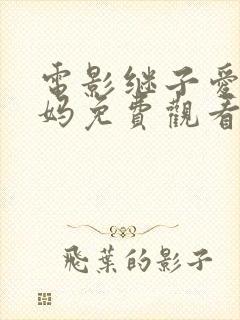 電影继子爱
妈免費觀看
飛葉的影子